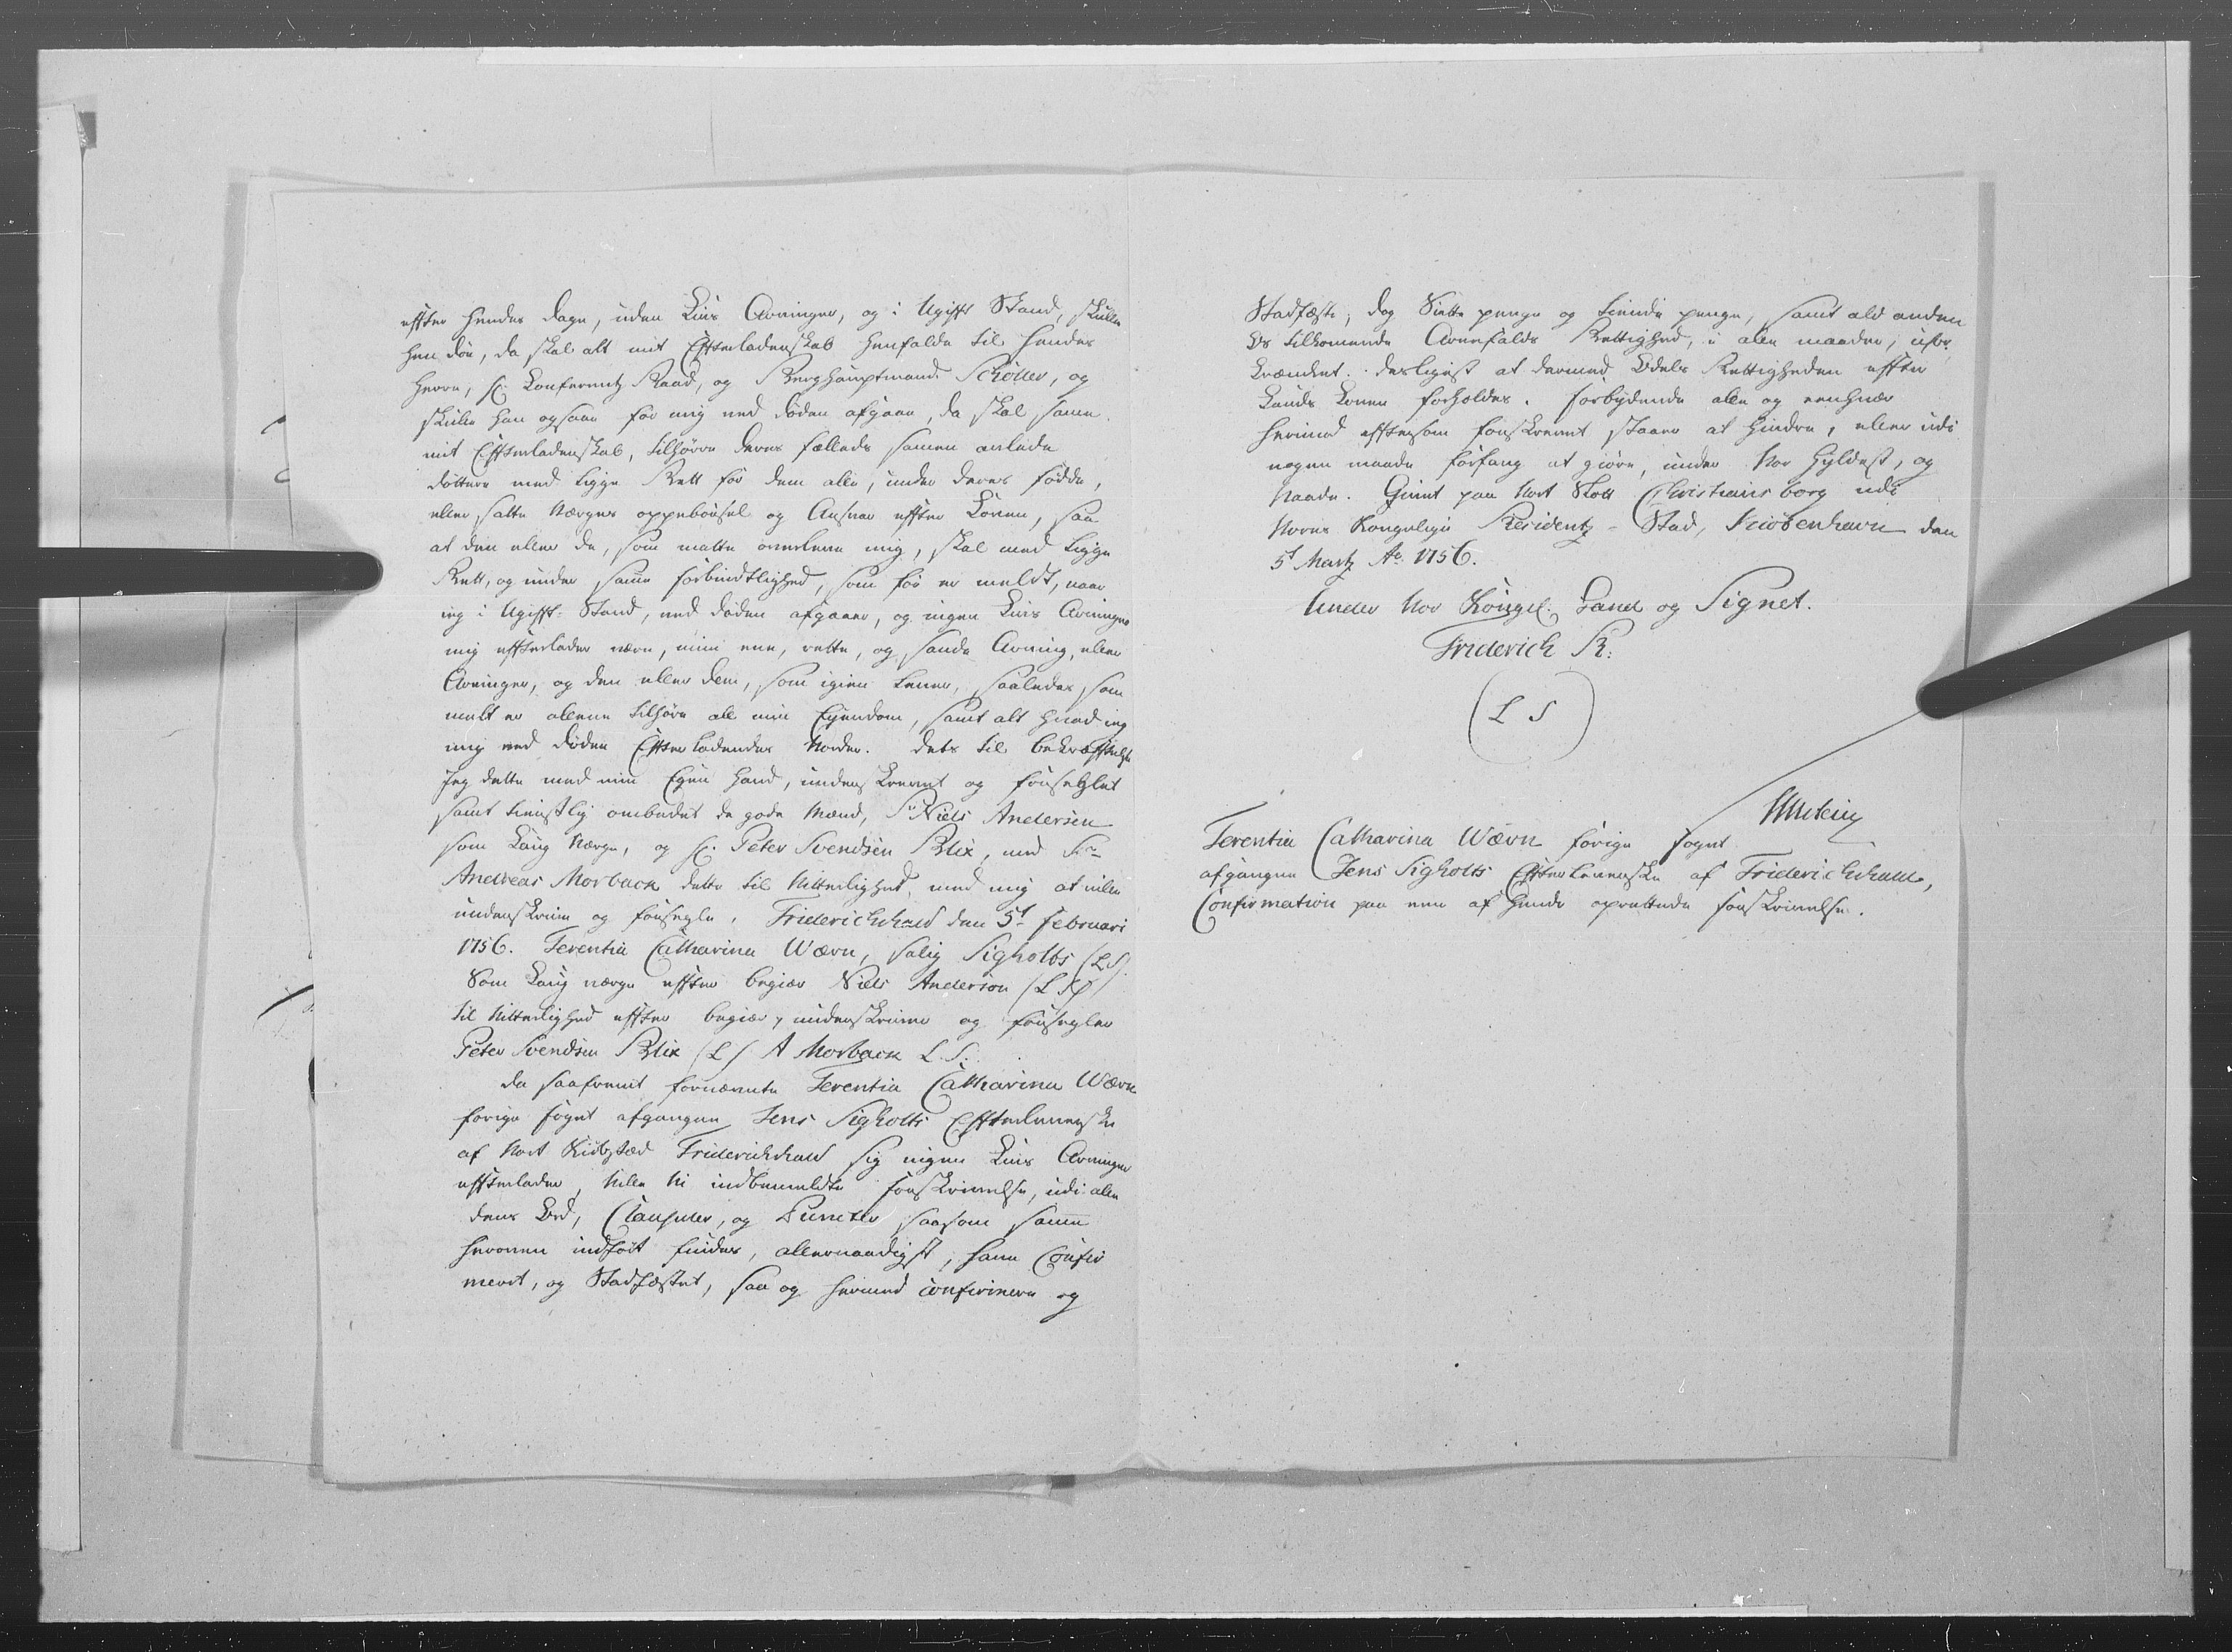 effter hendes dage, uden Liivs Arvinger, og i Ugift Stand, skulle
hen döe, da skal alt mit Effterladenskab henfalde til hendes
Herre, Hr. Conferentz Raad, og Berghauptmand Schöller, og
skulle han ogsaa för mig ved döden afgaae, da skal samme
mit Effterladenskab, tilhörre deres fælleds sammen avlede
döttre med liige Rett for dem alle, under deres födde,
eller satte Værges oppebörsel og Ansvar effter Loven, saa
at den eller de, som maatte overleve mig, skal med liige
Rett, og under samme forbindtlighed, som för er meldt, naar
ieg i Ugifft Stand, ved döden afgaaer, og ingen Livs Arvinger
mig effterlader være, min ene, rette, og sande Arving, eller
Arvinger, og den eller dem, som igien lever, saaledes som
melt er allene tilhöre all min Eyendom, samt alt hvad ieg
mig ved döden Effterladendes Vorder. Dets til bekræfftelse
Jeg dette med min Egen Haand, underskrevet og forseglet
samt tienstlig ombedet de gode Mænd, Sr Niels Andersen
som Laug Værge, og Hr. Peter Svendsen Blix, med Sr
Andreas Morback dette til Vitterlighed, med mig at ville
underskrive og forsegle. Friderichshald den 5t Februari
1756. Terentia Catharina Wærn, salig Sigholts (LS).
Som Laug værge effter begiær Niels Anderson (LS)
til Vitterlighed effter begiær, underskriver og forsegler
Peter Svendsen Blix (LS) A Morback L.S.
da saafremt fornævnte Terentia Catharina Wærn
forige foget afgangne Jens Sigholts Effterleverske
af Vort Kiöbstæd Friderichshald sig ingen Livs Arvinger
effterlader, Ville Vi indbemeldte forskrivelse, udi alle
dens Ord, Clausuler, og Puncter saasom samme
heroven indfört findes, allernaadigst, have Confir
meret, og Stadfæstet, saa og hermed confirmere og
Stadfæste, dog Siette penge og tiende penge, samt ald anden
Os tilkommende Arvefalds Rettighed, i alle maader, ufor
krænket. desligest at dermed Odels Rettigheden effter
Lands Loven forholdes. forbydende alle og eenhver
herimod eftersom forskrevet staaer at hindre, eller udi
nogen maade forfang at giöre, under Vor Hyldest, og
Naade. Givet paa Vort Slott Christiansborg udi
Vores Kongelige Residentz-Stad, Kiöbenhavn den
5t Martz Ao 1756.
Under Vor Kongel. Haand og Signet.
Friderich R:
(L S)
Terentia Catharina Wærn forige foget
afgangne Jens Sigholts Effterleverske af Friderichshald,
Confirmation paa een af hende oprettede forskrivelse.